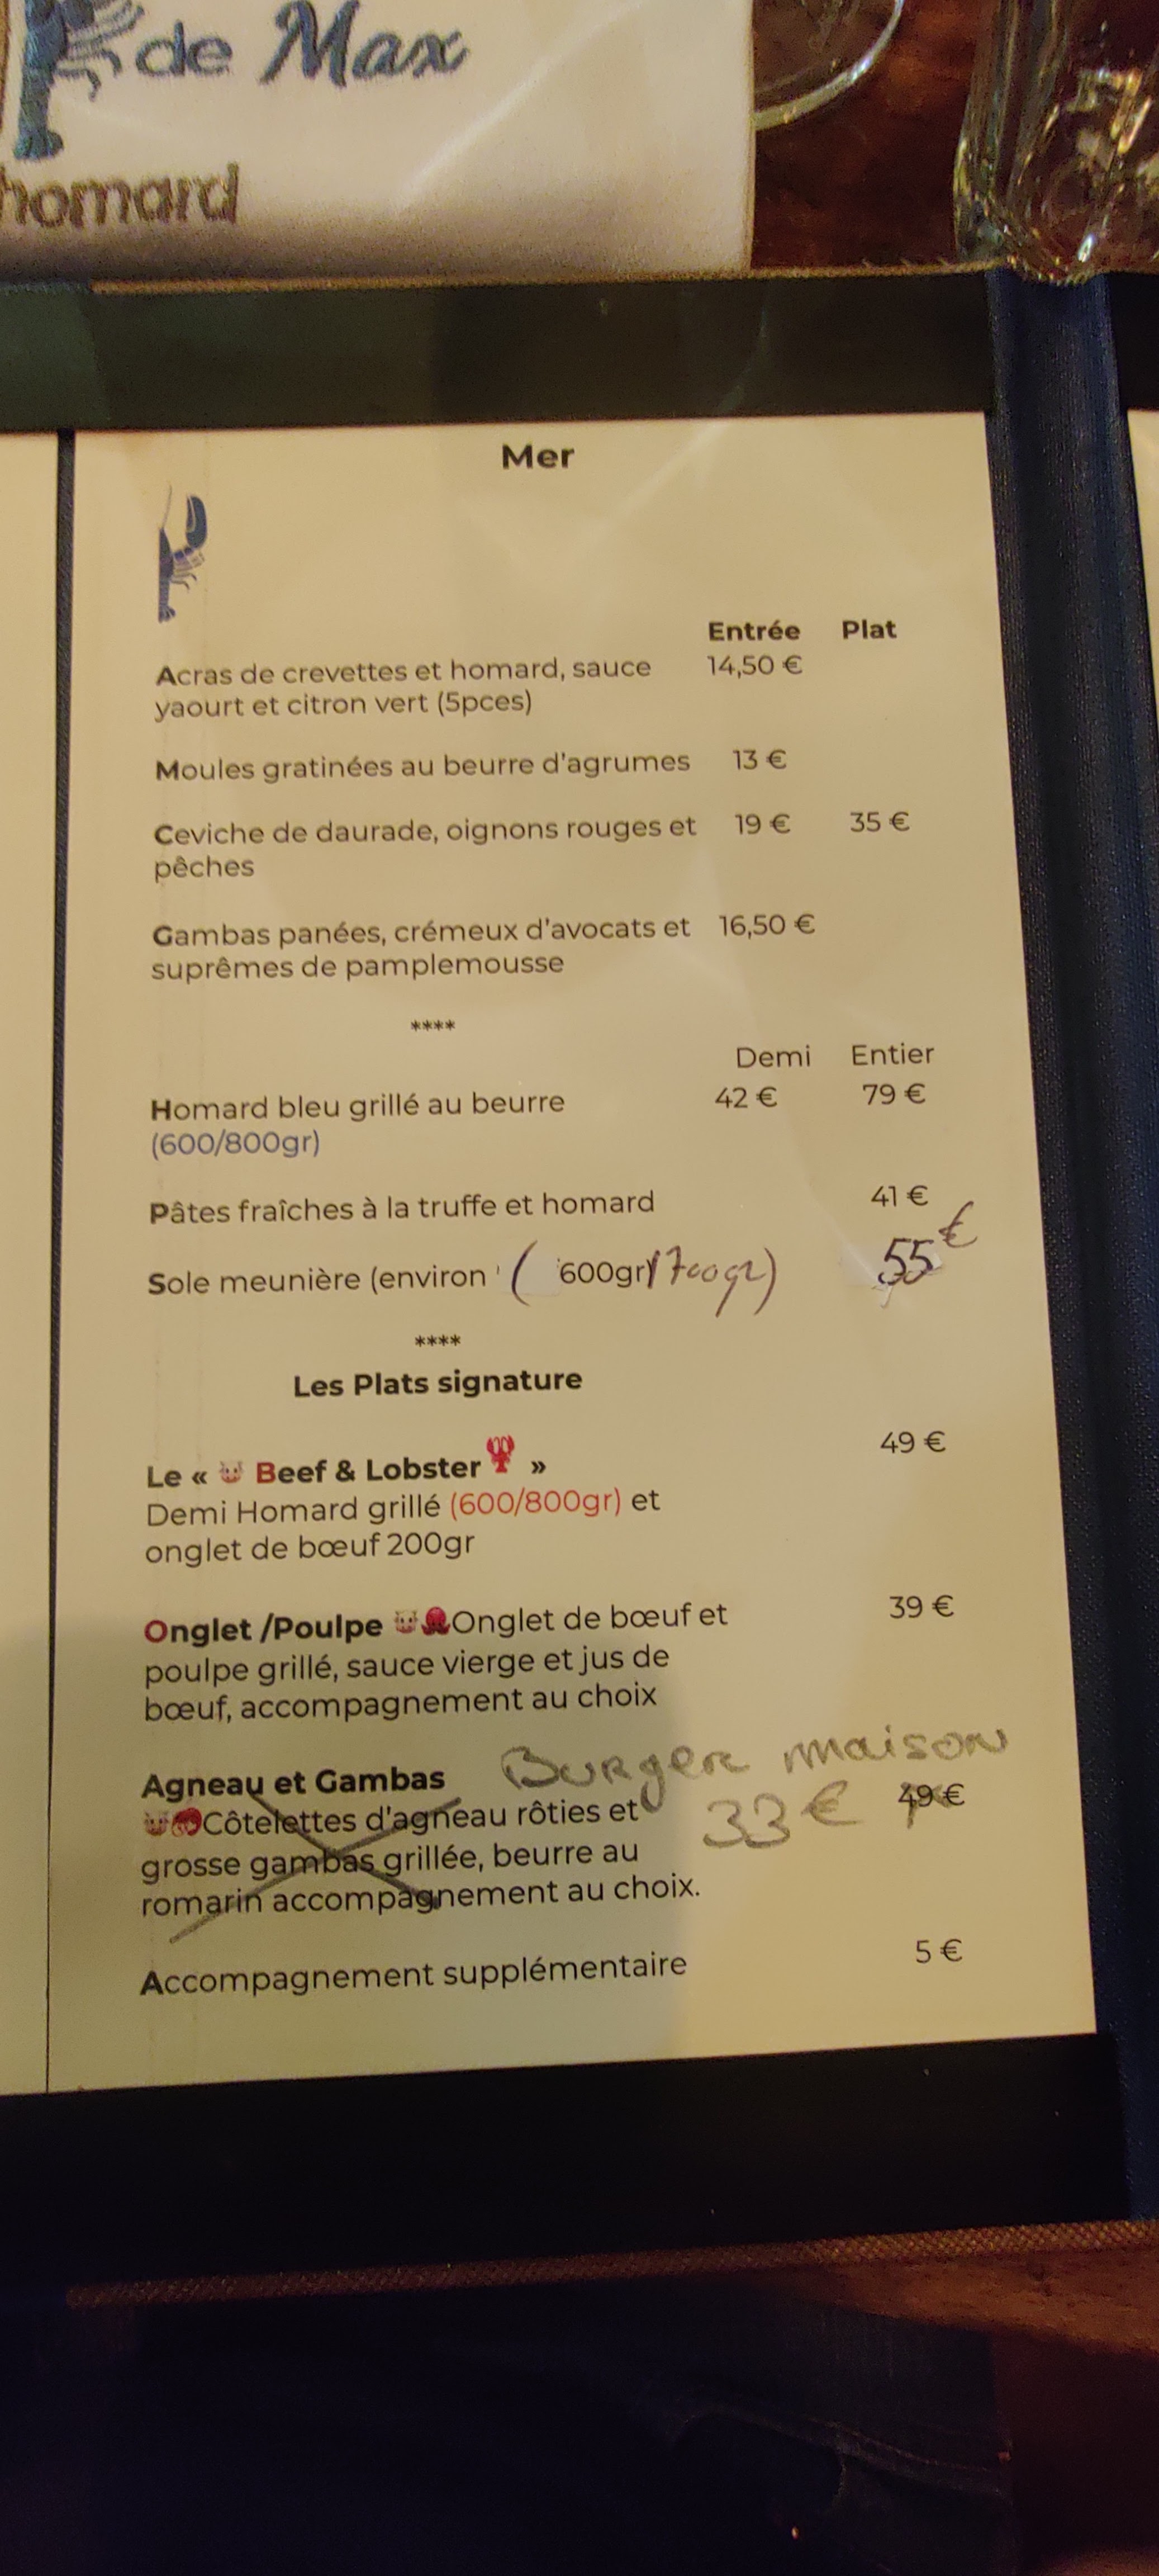 de Max
homard
Mer
Entrée Plat
Acras de crevettes et homard, sauce 14,50 €
yaourt et citron vert (5pces)
Moules gratinées au beurre d'agrumes 13 €
Ceviche de daurade, oignons rouges et 19 € 35 €
pêches
Gambas panées, crémeux d'avocats et 16,50 €
suprêmes de pamplemousse
****
Demi Entier
Homard bleu grillé au beurre 42 € 79 €
(600/800gr)
Pâtes fraîches à la truffe et homard 41 €
Sole meunière (environ ( 600gr)/700gr) 55 €
****
Les Plats signature
Le « Beef & Lobster » 49 €
Demi Homard grillé (600/800gr) et
onglet de bœuf 200gr
Onglet /Poulpe Onglet de bœuf et 39 €
poulpe grillé, sauce vierge et jus de
bœuf, accompagnement au choix
Agneau et Gambas Burger maison
Côtelettes d'agneau rôties et 33 € 49 €
grosse gambas grillée, beurre au
romarin accompagnement au choix.
Accompagnement supplémentaire 5 €